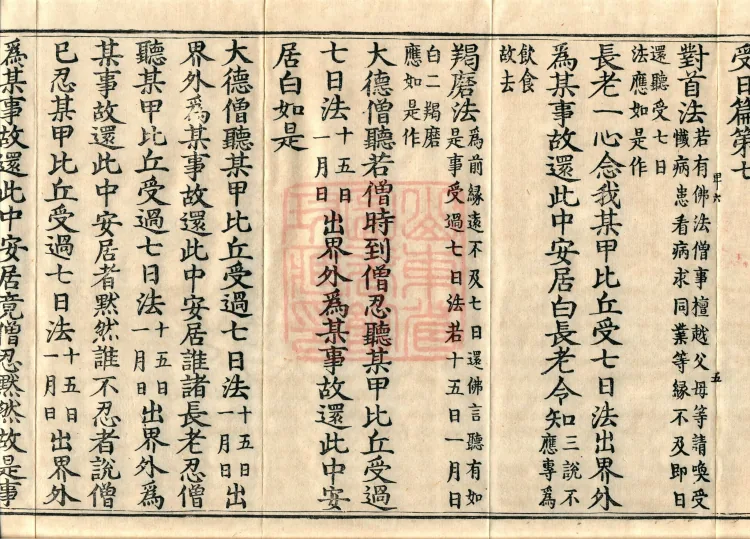 受日篇第七
甲六
五
對首法若有佛法僧事檀越父母等請喚受
懺病患看病求同業等縁不及即日
還聽受七日
法應如是作
長老一心念我某甲比丘受七日法出界外
爲某事故還此中安居白長老令知三說不
應專爲
飲食
故去
羯磨法爲前縁遠不及七日還佛言聽有如
是事受過七日法若十五日一月日
白二羯磨
應如是作
大德僧聽若僧時到僧忍聽某甲比丘受過
七日法十五日一月日出界外爲某事故還此中安
居白如是
大德僧聽某甲比丘受過七日法十五日一月日出
界外爲某事故還此中安居誰諸長老忍僧
聽某甲比丘受過七日法十五日一月日出界外爲
某事故還此中安居者默然誰不忍者說僧
已忍某甲比丘受過七日法十五日一月日出界外
爲某事故還此中安居竟僧忍默然故是事